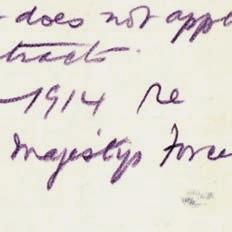 does not appl
tracts.
- 1914 re
Majestys Force